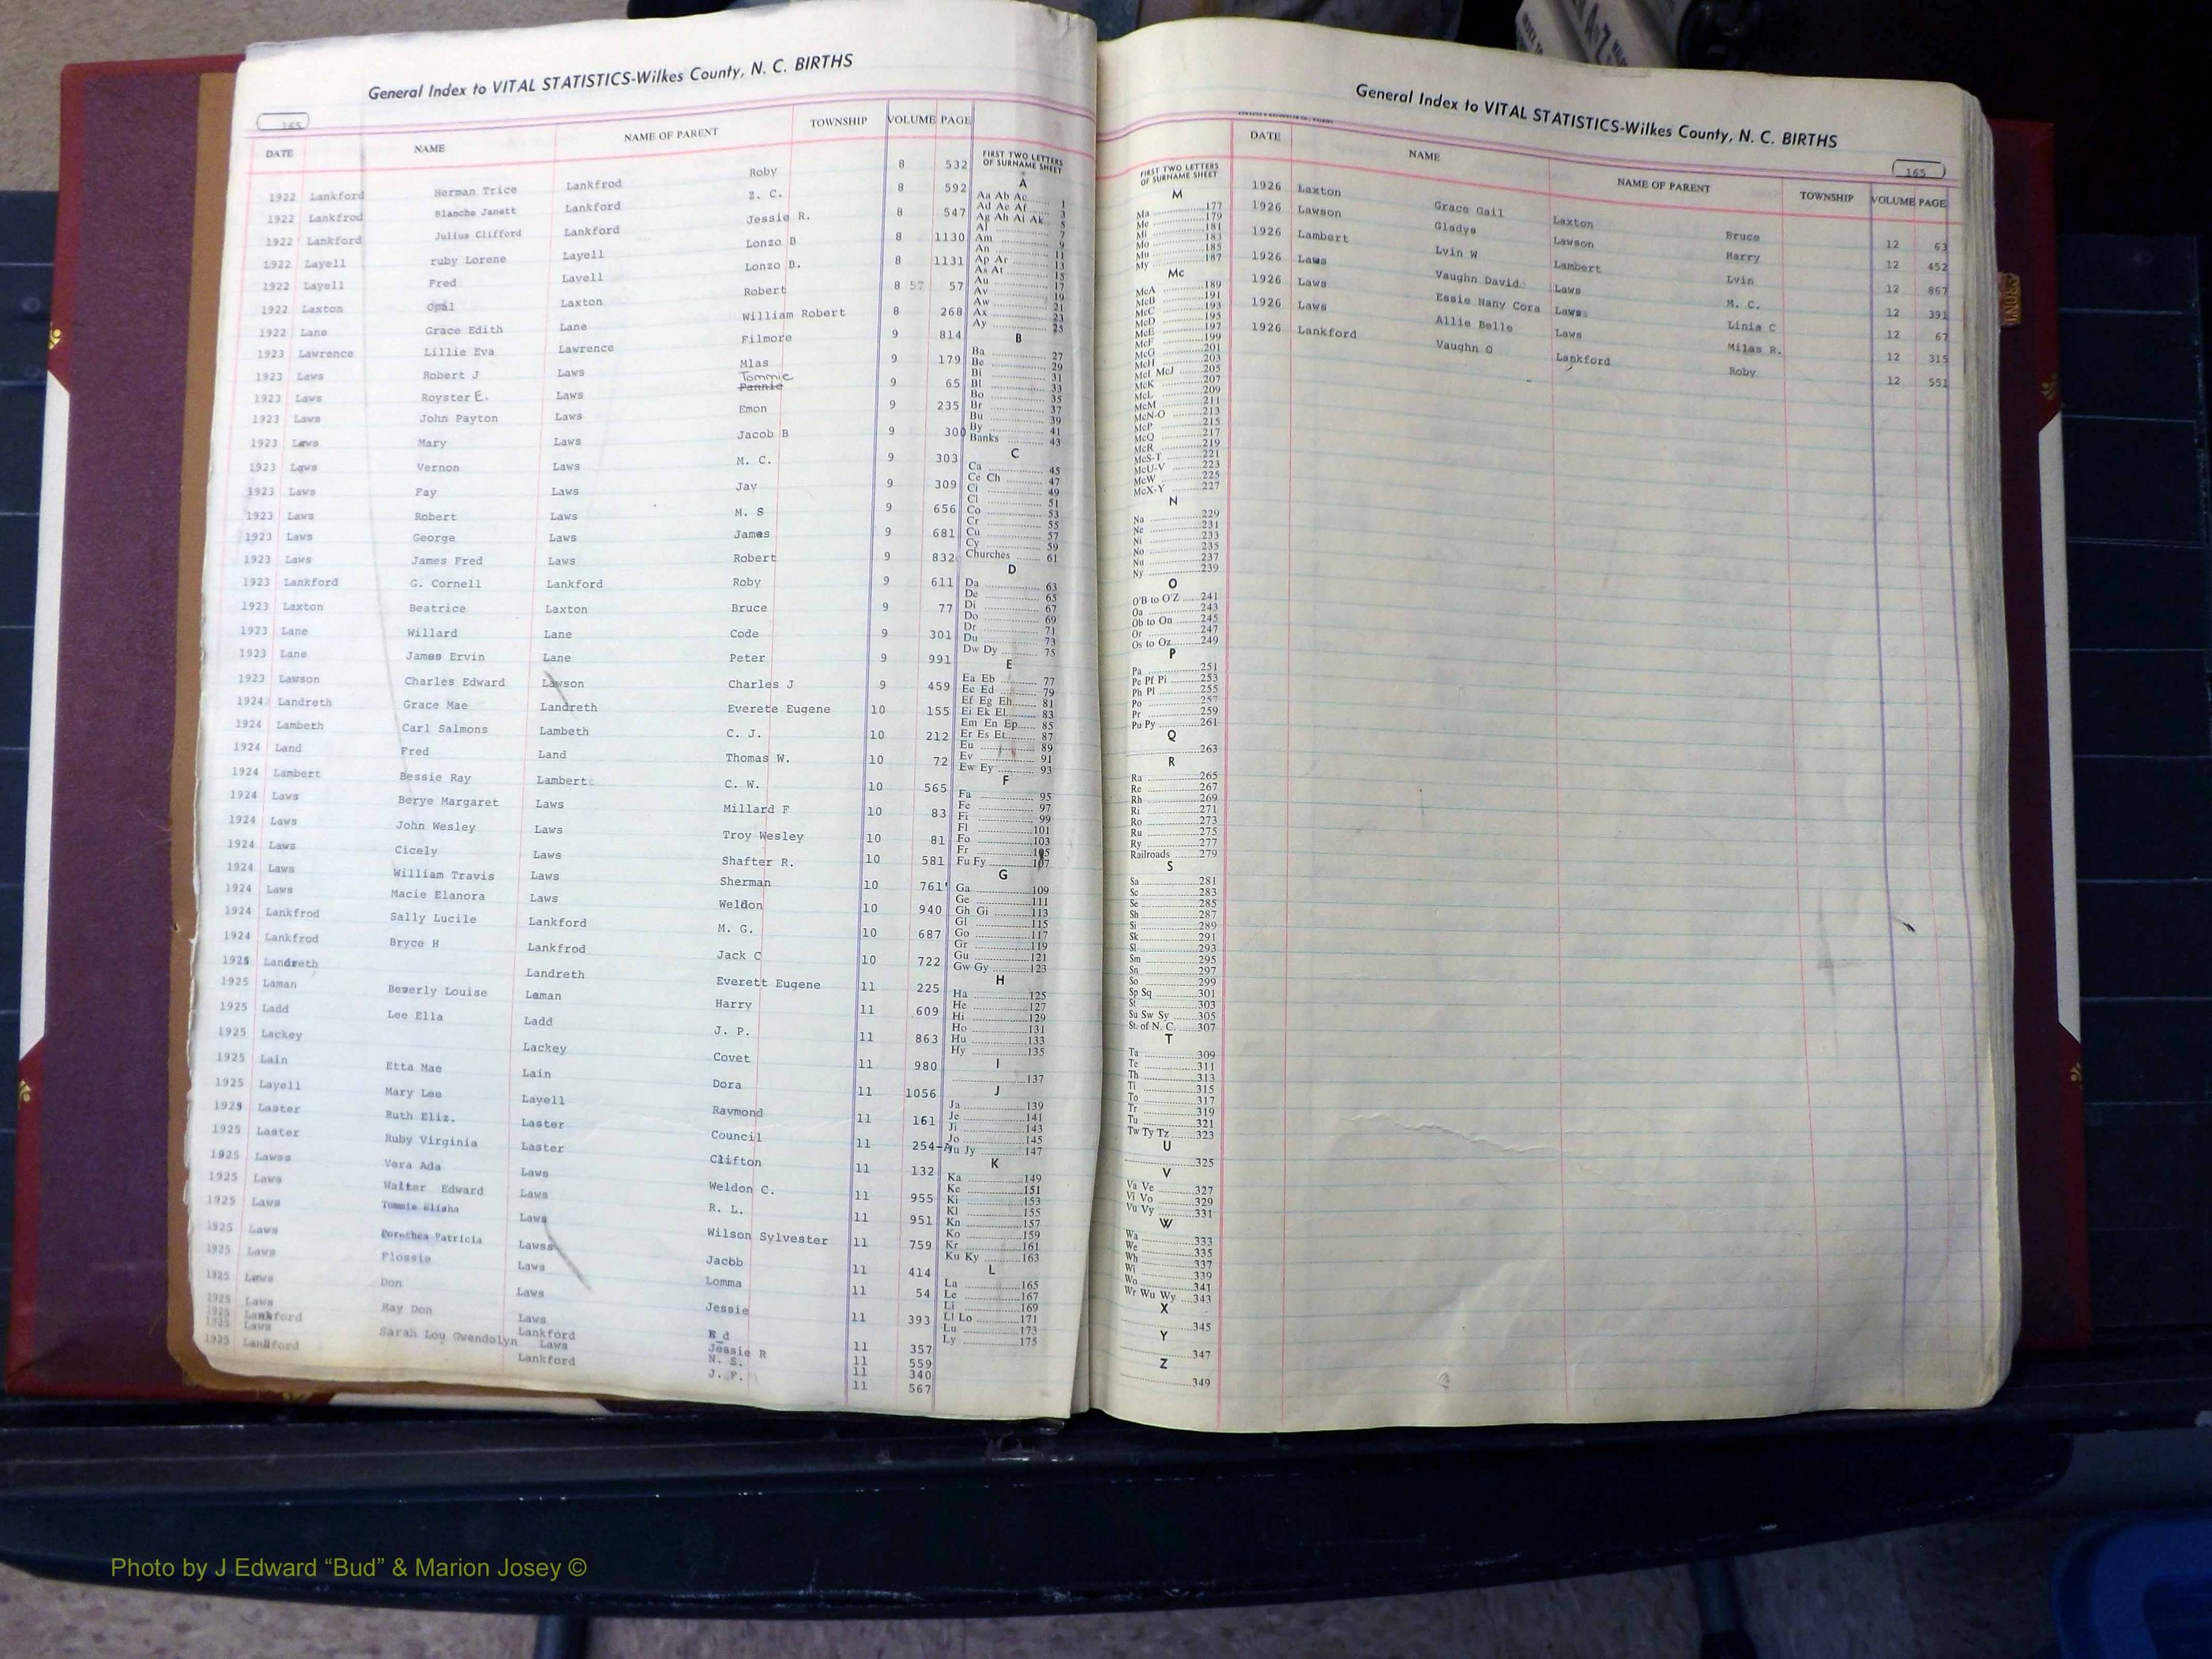 General Index to VITAL STATISTICS-Wilkes County, N. C. BIRTHS
165
DATE NAME NAME OF PARENT TOWNSHIP VOLUME PAGE
1922 Lankford Herman Trice Lankfrod Roby 8 532
1922 Lankfrod Blanche Janett Lankford Z. C. 8 592
1922 Lankford Julius Clifford Lankford Jessie R. 8 547
1922 Layell ruby Lorene Layell Lonzo B 8 1130
1922 Layell Fred Layell Lonzo B. 8 1131
1922 Laxton Opal Laxton Robert 8 57 57
1922 Lane Grace Edith Lane William Robert 8 268
1923 Lawrence Lillie Eva Lawrence Filmore 9 814
1923 Laws Robert J Laws Mlas 9 179
1923 Laws Royster E. Laws Tommie Pannie 9 65
1923 Laws John Payton Laws Emon 9 235
1923 Laws Mary Laws Jacob B 9 300
1923 Laws Vernon Laws M. C. 9 303
1923 Laws Fay Laws Jay 9 309
1923 Laws Robert Laws M. S 9 656
1923 Laws George Laws James 9 681
1923 Laws James Fred Laws Robert 9 832
1923 Lankford G. Cornell Lankford Roby 9 611
1923 Laxton Beatrice Laxton Bruce 9 77
1923 Lane Willard Lane Code 9 301
1923 Lane James Ervin Lane Peter 9 991
1923 Lawson Charles Edward Lawson Charles J 9 459
1924 Landreth Grace Mae Landreth Everete Eugene 10 155
1924 Lambeth Carl Salmons Lambeth C. J. 10 212
1924 Land Fred Land Thomas W. 10 72
1924 Lambert Bessie Ray Lambert C. W. 10 565
1924 Laws Berye Margaret Laws Millard F 10 83
1924 Laws John Wesley Laws Troy Wesley 10 81
1924 Laws Cicely Laws Shafter R. 10 581
1924 Laws William Travis Laws Sherman 10 761
1924 Laws Macie Elanora Laws Weldon 10 940
1924 Lankfrod Sally Lucile Lankford M. G. 10 687
1924 Lankfrod Bryce H Lankfrod Jack C 10 722
1925 Landreth Landreth Everett Eugene 11 225
1925 Laman Beverly Louise Laman Harry 11 609
1925 Ladd Lee Ella Ladd J. P. 11 863
1925 Lackey Lackey Covet 11 980
1925 Lain Etta Mae Lain Dora 11 1056
1925 Layell Mary Lee Layell Raymond 11 161
1925 Laster Ruth Eliz. Laster Council 11 254-A
1925 Laster Ruby Virginia Laster Clifton 11 132
1925 Lawss Vera Ada Laws Weldon C. 11 955
1925 Laws Walter Edward Laws R. L. 11 951
1925 Laws Tommie Elisha Laws Wilson Sylvester 11 759
1925 Laws Dorothea Patricia Lawss Jacob 11 414
1925 Laws Flossie Laws Lomma 11 54
1925 Laws Don Laws Jessie 11 393
1925 Laws Ray Don Laws 11 357
1925 Lankford Lankford Jessie R 11 559
1925 Laws Sarah Lou Gwendolyn Laws N. S. 11 340
1925 Lankford Lankford J. F. 11 567
FIRST TWO LETTERS OF SURNAME SHEET
A
Aa Ab Ac 1
Ad Ae Af 3
Ag Ah Ai Ak 5
Al 7
Am 9
An 11
Ap Ar 13
As At 15
Au 17
Av 19
Aw 21
Ax 23
Ay 25
B
Ba 27
Be 29
Bi 31
Bl 33
Bo 35
Br 37
Bu 39
By 41
Banks 43
C
Ca 45
Ce Ch 47
Ci 49
Cl 51
Co 53
Cr 55
Cu 57
Cy 59
Churches 61
D
Da 63
De 65
Di 67
Do 69
Dr 71
Du 73
Dw Dy 75
E
Ea Eb 77
Ec Ed 79
Ef Eg Eh 81
Ei Ek El 83
Em En Ep 85
Er Es Et 87
Eu 89
Ev 91
Ew Ey 93
F
Fa 95
Fe 97
Fi 99
Fl 101
Fo 103
Fr 105
Fu Fy 107
G
Ga 109
Ge 111
Gh Gi 113
Gl 115
Go 117
Gr 119
Gu 121
Gw Gy 123
H
Ha 125
He 127
Hi 129
Ho 131
Hu 133
Hy 135
I
137
J
Ja 139
Je 141
Ji 143
Jo 145
Ju Jy 147
K
Ka 149
Ke 151
Ki 153
Kl 155
Kn 157
Ko 159
Kr 161
Ku Ky 163
L
La 165
Le 167
Li 169
Ll Lo 171
Lu 173
Ly 175
General Index to VITAL STATISTICS-Wilkes County, N. C. BIRTHS
165
FIRST TWO LETTERS OF SURNAME SHEET
M
Ma 177
Me 179
Mi 181
Mo 183
Mu 185
My 187
Mc
McA 189
McB 191
McC 193
McD 195
McE 197
McF 199
McG 201
McH 203
McI McJ 205
McK 207
McL 209
McM 211
McN-O 213
McP 215
McQ 217
McR 219
McS-T 221
McU-V 223
McW 225
McX-Y 227
N
Na 229
Ne 231
Ni 233
No 235
Nu 237
Ny 239
O
O'B to O'Z 241
Oa 243
Ob to On 245
Or 247
Os to Oz 249
P
Pa 251
Pe Pf Pi 253
Ph Pl 255
Po 257
Pr 259
Pu Py 261
Q
263
R
Ra 265
Re 267
Rh 269
Ri 271
Ro 273
Ru 275
Ry 277
Railroads 279
S
Sa 281
Sc 283
Se 285
Sh 287
Si 289
Sk 291
Sl 293
Sm 295
Sn 297
So 299
Sp Sq 301
St 303
Su Sw Sy 305
St. of N. C. 307
T
Ta 309
Te 311
Th 313
Ti 315
To 317
Tr 319
Tu 321
Tw Ty Tz 323
U
325
V
Va Ve 327
Vi Vo 329
Vu Vy 331
W
Wa 333
We 335
Wh 337
Wi 339
Wo 341
Wr Wu Wy 343
X
345
Y
347
Z
349
DATE NAME NAME OF PARENT TOWNSHIP VOLUME PAGE
1926 Laxton Grace Gail Laxton Bruce 12 63
1926 Lawson Gladys Lawson Harry 12 452
1926 Lambert Lvin W Lambert Lvin 12 867
1926 Laws Vaughn David Laws M. C. 12 391
1926 Laws Essie Nany Cora Laws Linia C 12 67
1926 Laws Allie Belle Laws Milas R. 12 315
1926 Lankford Vaughn O Lankford Roby 12 551
Photo by J Edward “Bud” & Marion Josey ©